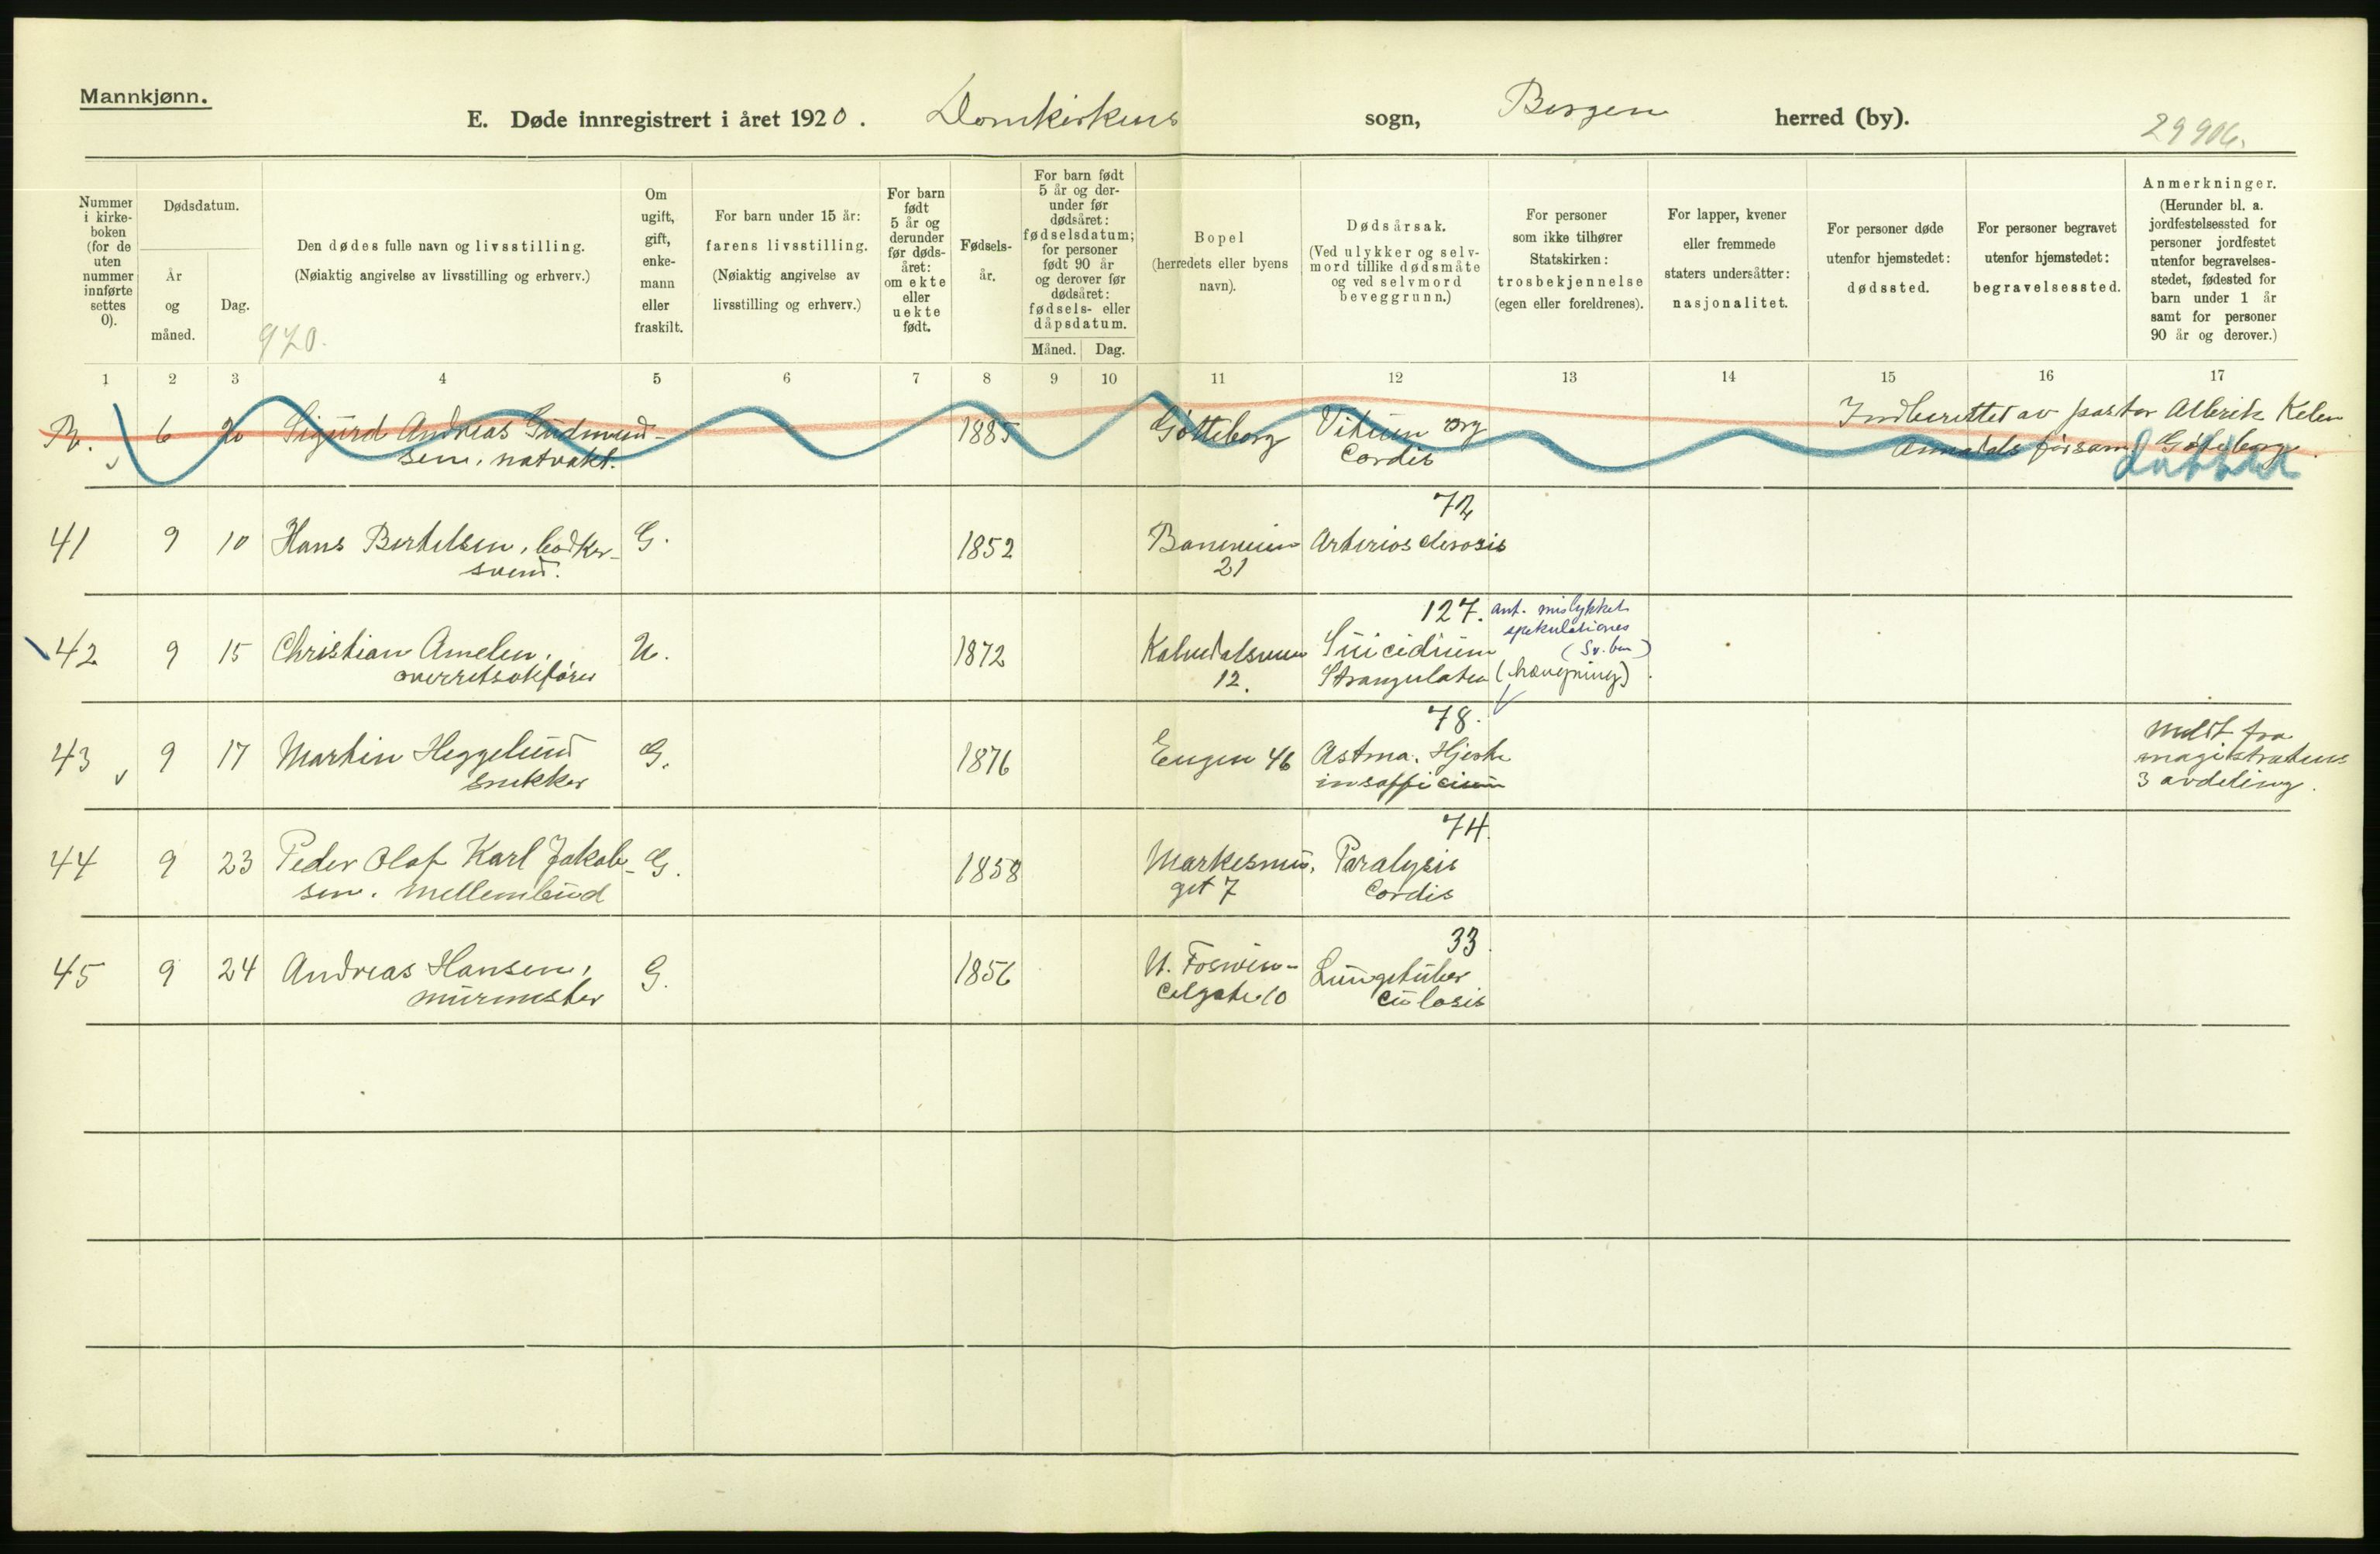 Mannkjønn.
E. Døde innregistrert i året 1920. Domkirkens sogn, Bergen herred (by).
29906.
Nummer i kirke- boken (for de uten nummer innførte settes 0).
Dødsdatum.
År og måned.
Dag.
Den dødes fulle navn og livsstilling.
(Nøiaktig angivelse av livsstilling og erhverv.)
920.
Om ugift, gift, enke- mann eller fraskilt.
For barn under 15 år:
farens livsstilling.
(Nøiaktig angivelse av livsstilling og erhverv.)
For barn født 5 år og derunder før døds- året: om ekte eller uekte født.
Fødsels- år.
For barn født 5 år og der- under før dødsåret: fødselsdatum; for personer født 90 år og derover før dødsåret: fødsels- eller dåpsdatum.
Måned. Dag.
Bopel
(herredets eller byens navn).
Dødsårsak.
(Ved ulykker og selv- mord tillike dødsmåte og ved selvmord beveggrunn.)
For personer som ikke tilhører Statskirken: trosbekjennelse (egen eller foreldrenes).
For lapper, kvener eller fremmede staters undersåtter: nasjonalitet.
For personer døde utenfor hjemstedet: dødssted.
For personer begravet utenfor hjemstedet: begravelsessted.
Anmerkninger.
(Herunder bl. a. jordfestelsessted for personer jordfestet utenfor begravelses- stedet, fødested for barn under 1 år samt for personer 90 år og derover.)
1 2 3 4 5 6 7 8 9 10 11 12 13 14 15 16 17
6 20 Sigurd Andreas Gudmund- 1885 Gøtteborg Vitium org Indberettet av pastor Albrik
sen, natvakt. Cordis Annedals församl Göteborg.
72
41 9 10 Hans Bertelsen, bødker- G. 1852 Baneveien Arteriosclerosis
svend. 21
127. ant. mislykket
spekulationes
(Sv. ben)
42 9 15 Christian Amelen, U. 1872 Kalvedalsveien Suicidium
overretsakfører 12. Strangulatio (hængning)
78.
43 9 17 Martin Heggelund G. 1876 Engen 46 Astma. Hjerte Meldt fra
snekker insufficiens magistratens
3 avdeling.
74.
44 9 23 Peder Olaf Karl Jakob- G. 1858 Markesmu, Paralysis
sen. Mellembud get 7 Cordis
33.
45 9 24 Andreas Hansen, G. 1856 N. Foswin- Lungetuber
murmester celgate 10 culosis